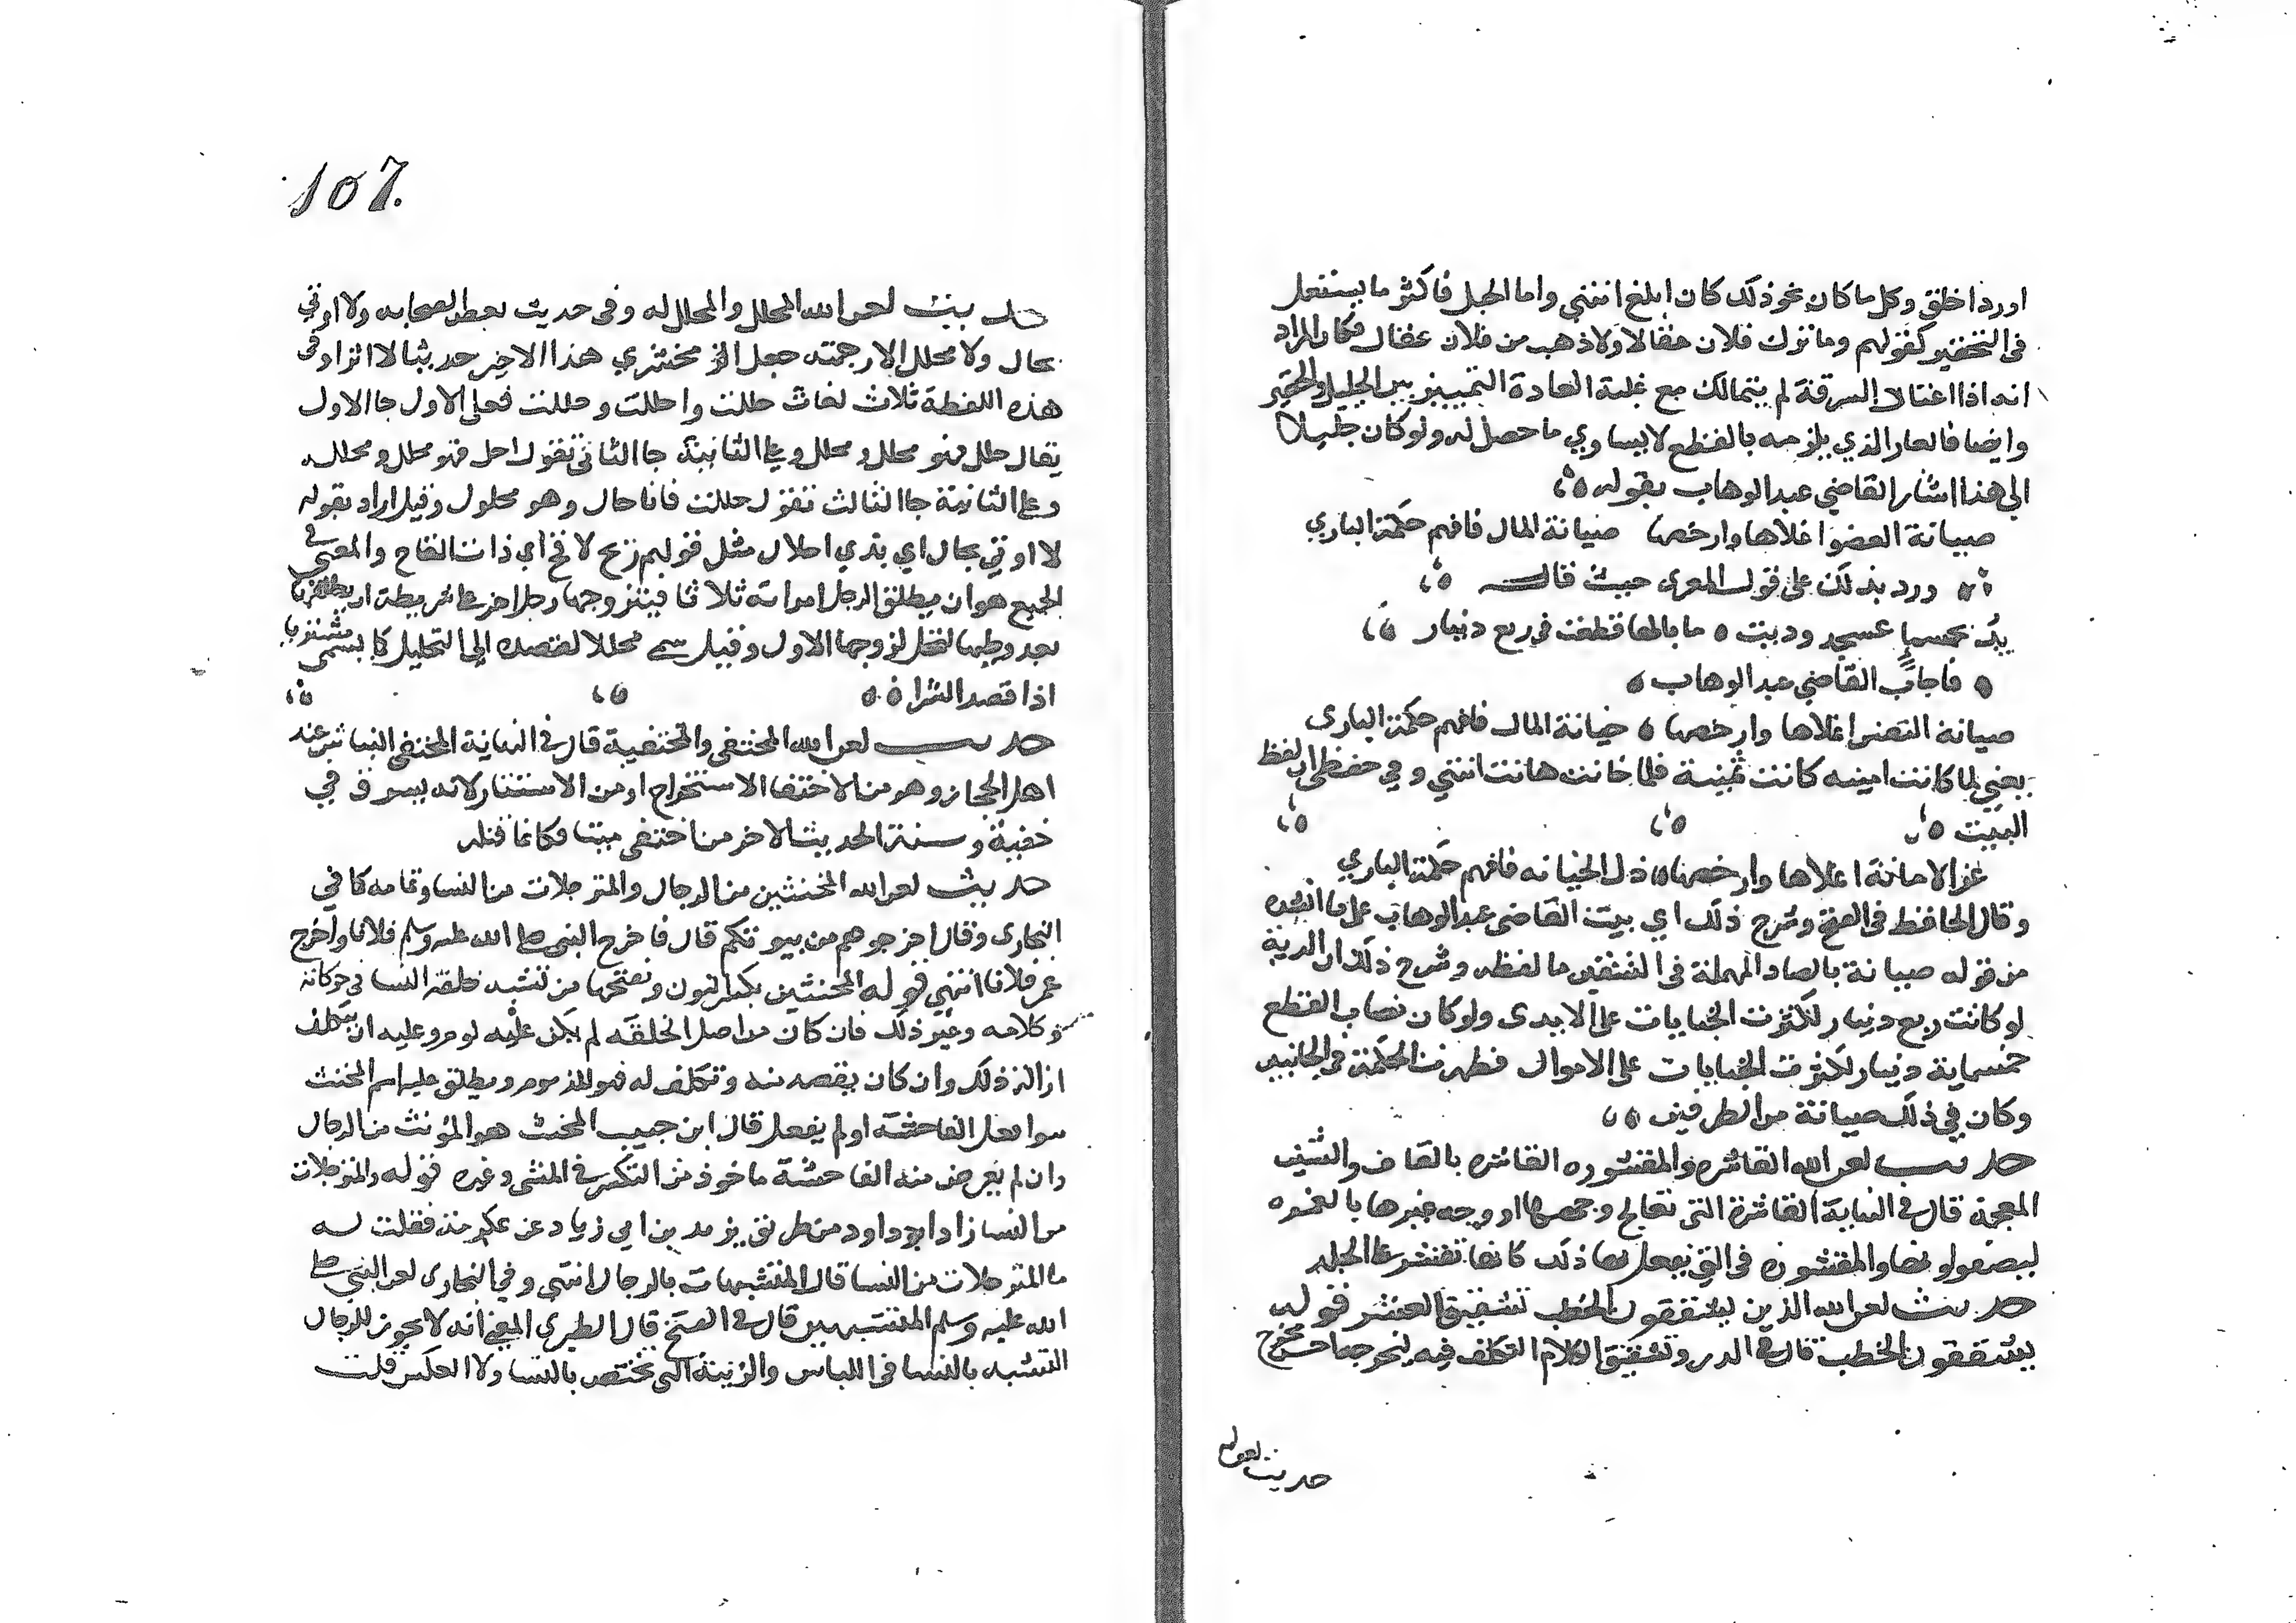 اورداخلق وكل ما كان نحو ذلك كان ابلغ انتهى واما الحبل فاكثر ما يستعمل
فى التحقير كقولهم وما ترك فلان عقالا ولا ذهب من فلان عقال فكان المراد
انه اذا اعتاد السرقة لم يتمالك مع غلبة العادة التمييز بين الجليل والحقير
وايضا فالعار الذي يلزمه بالقطع لا يساوي ما حصل له ولو كان جليلا
الى هذا اشار القاضي عبد الوهاب بقوله
صيانة العضو اغلاها وارخصها صيانة المال فافهم حكمة الباري
ورد بذلك على قول المعرى حيث قال
يد بخمس عسجد وديت ما بالها قطعت فى ربع دينار
فاجاب القاضي عبد الوهاب
صيانة النفس اغلاها وارخصها خيانة المال فافهم حكمة البارى
يعني لما كانت امينه كانت ثمينة فلما خانت هانت انتهي وفي حفظى ان لفظ
البيت
عز الامانة اغلاها وارخصها ذل الخيانه فافهم حكمة الباري
وقال الحافظ فى الفتح وشرح ذلك اي بيت القاضى عبد الوهاب على ما انشده
من قوله صيانة بالصاد المهملة فى الشقين ما لفظه وشرح ذلك ان الدية
لو كانت ربع دينار لكثرت الجنايات على الايدى ولو كان نصاب القطع
خمسماية دينار لكثرت الجنايات على الاموال فظهرت الحكمة فى الجانبين
وكان في ذلك صيانة من الطرفين
حديث لعن الله القاشره والمقشوره القاشره بالقاف والشين
المعجمة قال فى النهاية القاشرة التى تعالج وجهها او وجه غيرها بالغمره
ليصفو لونها والمقشوره فى التي يفعل بها ذلك كانها تقشر على الجلد
حديث لعن الله الذين يشققون الخطب تشقيق الشعر قوله
يشققون الخطب قال فى الدر وتشقيق الكلام التكلف فيه ليخرجها احسن مخرج
حديث لعن الله
107.
حديث لعن الله المحلل والمحلل له وفى حديث بعض الصحابه ولا اوتي
بحال ولا محلل الا رجمته جعل الزمخشري هذا الاخير حديثا لا اثرا وفى
هذه اللفظة ثلاث لغات حللت واحللت وحللت فعلى الاول جا الاول
يقال حلل فهو محلل ومحلل وعلى الثانية جا الثانى تقول احل فهو محل ومحلل
وعلى الثانية جا الثالث تقول حللت فانا حال وهو محلول وقيل اراد بقوله
لا اوتي بحال اي بذي احلال مثل قولهم ريح لاقح اي ذات القاح والمعنى فى
الجميع هو ان يطلق الرجل امراته ثلاثا فيتزوجها رجل اخر على شريطة ان يطلقها
بعد وطيها لتحل لزوجها الاول وقيل سمى محللا لقصده الى التحليل كما يسمى مشتريا
اذا قصد الشرا
حديث لعن الله المختفى والمختفية قال فى النهاية المختفى النباش عند
اهل الحجاز وهو من الاختفا الاستخراج او من الاستتار لانه يسرق في
خفية وسنة الحديث الاخر من اختفى ميتا فكانما قتله
حديث لعن الله المخنثين من الرجال والمترجلات من النسا وتمامه كما في
البخارى وقال اخرجوهم من بيوتكم قال فاخرج النبى صلى الله عليه وسلم فلانا واخرج
عمر فلانا انتهي قوله المخنثين بكسر النون وبفتحها من تشبه خلقة النسا فى حركاته
وكلامه وغير ذلك فان كان من اصل الخلقه لم يكن عليه لوم وعليه ان يتكلف
ازالة ذلك وان كان بقصد منه وتكلف له فهو المذموم ويطلق عليه اسم المخنث
سوا فعل الفاحشه او لم يفعل قال ابن حبيب المخنث هو المؤنث من الرجال
وان لم يعرف منه الفاحشة ماخوذ من التكسر فى المشى وغيره قوله والمترجلات
من النسا زاد ابو داود من طريق يزيد بن ابي زياد عن عكرمة فقلت له
ما المترجلات من النسا قال المتشبهات بالرجال انتهى وفي البخارى لعن النبي صلى
الله عليه وسلم المتشبهين قال فى الفتح قال الطبري المعنى انه لا يجوز للرجال
التشبه بالنسا فى اللباس والزينة التى تختص بالنسا ولا العكس قلت